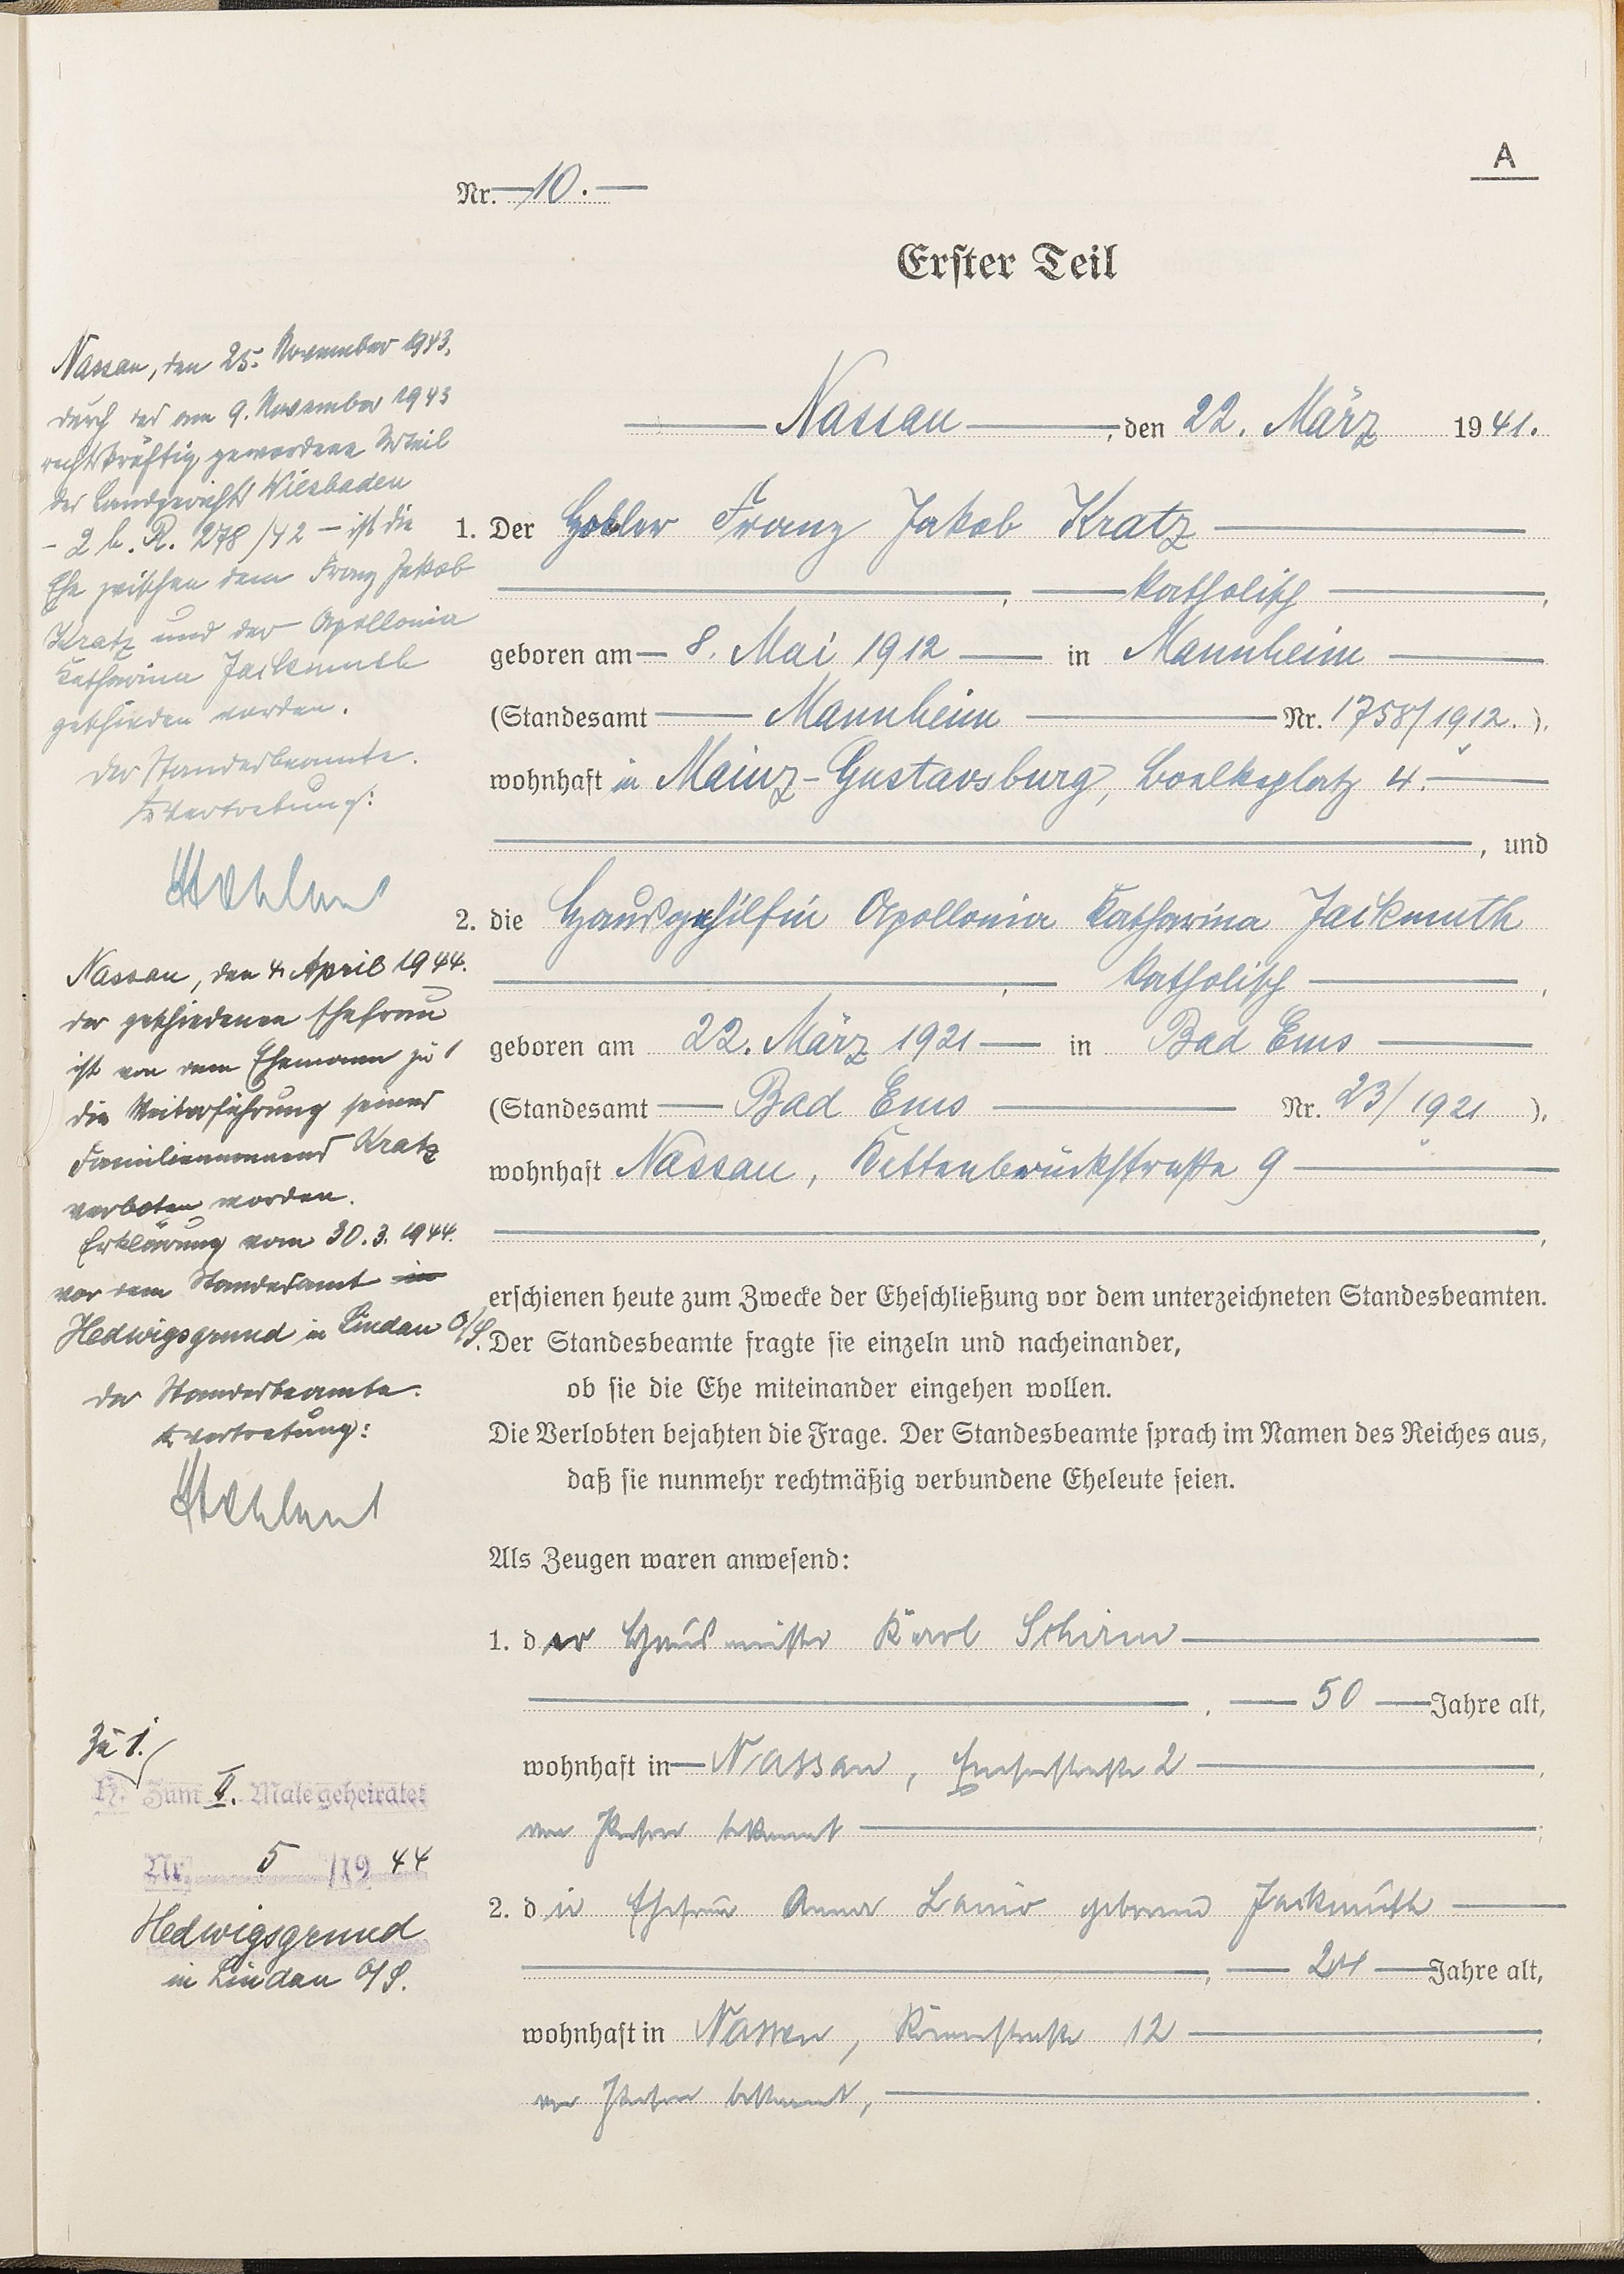 A
Nr. 10.
Erster Teil
Nassau, den 22. März 1941.
1. Der Hobler Franz Jakob Kratz
, katholisch,
geboren am 8. Mai 1912 in Mannheim
(Standesamt Mannheim Nr. 1758/1912.),
wohnhaft in Mainz-Gustavsburg, Boelkeplatz 4.
, und
2. die Hausgehilfin Apollonia Katharina Jackmuth
, katholisch,
geboren am 22. März 1921 in Bad Ems
(Standesamt Bad Ems Nr. 23/1921),
wohnhaft Nassau, Kettenbrückstraße 9
,
erschienen heute zum Zwecke der Eheschließung vor dem unterzeichneten Standesbeamten.
Der Standesbeamte fragte sie einzeln und nacheinander,
ob sie die Ehe miteinander eingehen wollen.
Die Verlobten bejahten die Frage. Der Standesbeamte sprach im Namen des Reiches aus,
daß sie nunmehr rechtmäßig verbundene Eheleute seien.
Als Zeugen waren anwesend:
1. der Hausmeister Karl Schirm
, 50 Jahre alt,
wohnhaft in Nassau, Emserstraße 2,
von Person bekannt;
2. die Ehefrau Anna geborene Jackmuth
, Jahre alt,
wohnhaft in Nassau, 12,
von Person bekannt,
Nassau, den 25. November 1943.
Durch das am 9. November 1943
rechtskräftig gewordene Urteil
des Landgerichts Wiesbaden
- 2 b. R. 278/42 - ist die
Ehe zwischen dem Franz Jakob
Kratz und der Apollonia
Katharina Jackmuth
geschieden worden.
Der Standesbeamte.
In Vertretung:
Nassau, den 4. April 1944.
Der geschiedenen Ehefrau
ist von dem Ehemann zu 1
die Weiterführung seines
Familiennamens Kratz
verboten worden.
Erklärung vom 30.3.1944.
vor dem Standesamt in
Hedwigsgrund in Lindau O/S.
Der Standesbeamte.
In Vertretung:
Zu 1.
Zum II. Male geheiratet
Nr. 5/1944
Hedwigsgrund
in Lindau O/S.